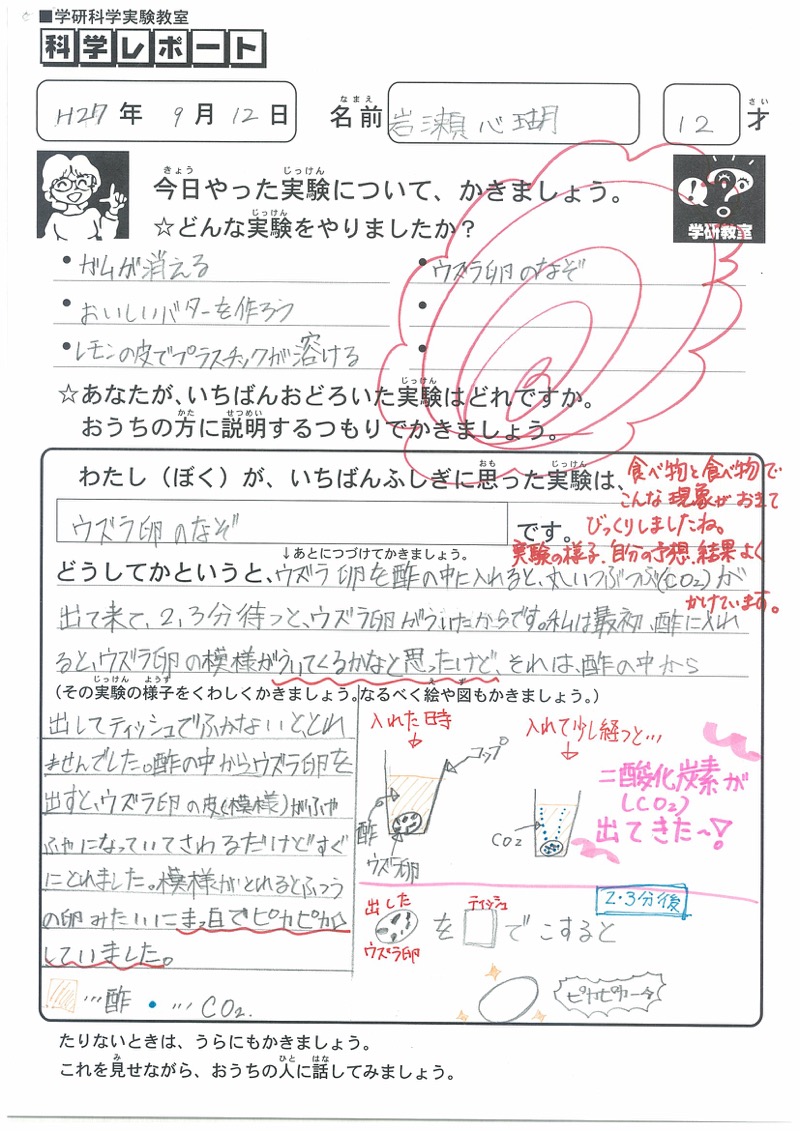 ■学研科学実験教室
科学レポート
H27年 9月12日 名前 岩瀬心瑚 12才
今日やった実験について、かきましょう。
☆どんな実験をやりましたか?
学研教室
・ガムが消える
・ウズラ卵のなぞ
・おいしいバターを作ろう
・
・レモンの皮でプラスチックが溶ける
・
☆あなたが、いちばんおどろいた実験はどれですか。
おうちの方に説明するつもりでかきましょう。
わたし(ぼく)が、いちばんふしぎに思った実験は、
ウズラ卵のなぞ です。
食べ物と食べ物で
こんな現象がおきて
びっくりしましたね。
実験の様子、自分の予想、結果よく
かけています。
↓あとにつづけてかきましょう。
どうしてかというと、ウズラ卵を酢の中に入れると、丸いつぶつぶ(CO2)が
出て来て、2,3分待つと、ウズラ卵がういたからです。私は最初、酢に入れ
ると、ウズラ卵の模様がういてくるかなと思ったけど、それは、酢の中から
(その実験の様子をくわしくかきましょう。なるべく絵や図もかきましょう。)
出してティッシュでふかないと、とれ
ませんでした。酢の中からウズラ卵を
出すと、ウズラ卵の皮(模様)がふや
ふやになっていてさわるだけどすぐ
にとれました。模様がとれるとふつう
の卵みたいにまっ白でピカピカ
していました。
…酢 ・…CO2.
入れた時
コップ
酢
ウズラ卵
入れて少し経つと…
CO2
二酸化炭素が
(CO2)
出てきた~!
2・3分後
出した
ウズラ卵
を
ティッシュ
でこすると
ピカピカー☆
たりないときは、うらにもかきましょう。
これを見せながら、おうちの人に話してみましょう。